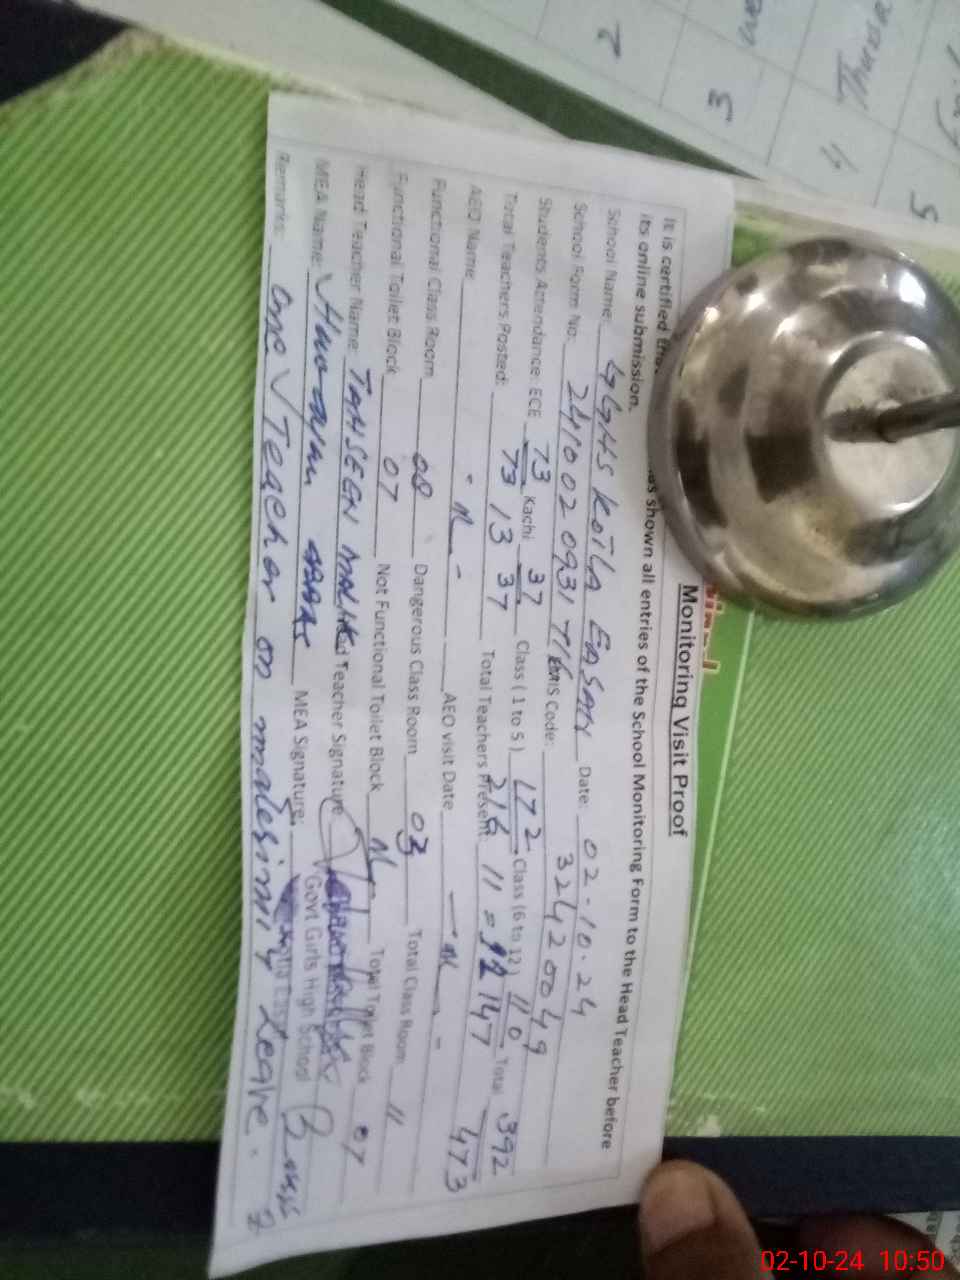 Monitoring Visit Proof
It is certified has shown all entries of the School Monitoring Form to the Head Teacher before
its online submission.
School Name: GGHS KOTLA EASAN Date: 02-10-24
School Form No: 2410020931716 EMIS Code: 32420049
Students Attendance: ECE 73/73 Kachi 37/37 Class (1 to 5) 172/216 Class (6 to 12) 110/147 Total 392/473
Total Teachers Posted: 13 Total Teachers Present 11
AEO Name: - N - AEO visit Date - N -
Functional Class Room 08 Dangerous Class Room 03 Total Class Room 11
Functional Toilet Block 07 Not Functional Toilet Block N Total Toilet Block 07
Head Teacher Name: TAHSEEN MALIK Head Teacher Signature
Govt Girls High School
MEA Name: ABBAS MEA Signature:
Remarks: One Teacher on Leave.
2
3
4 Thursda
5
02-10-24 10:50